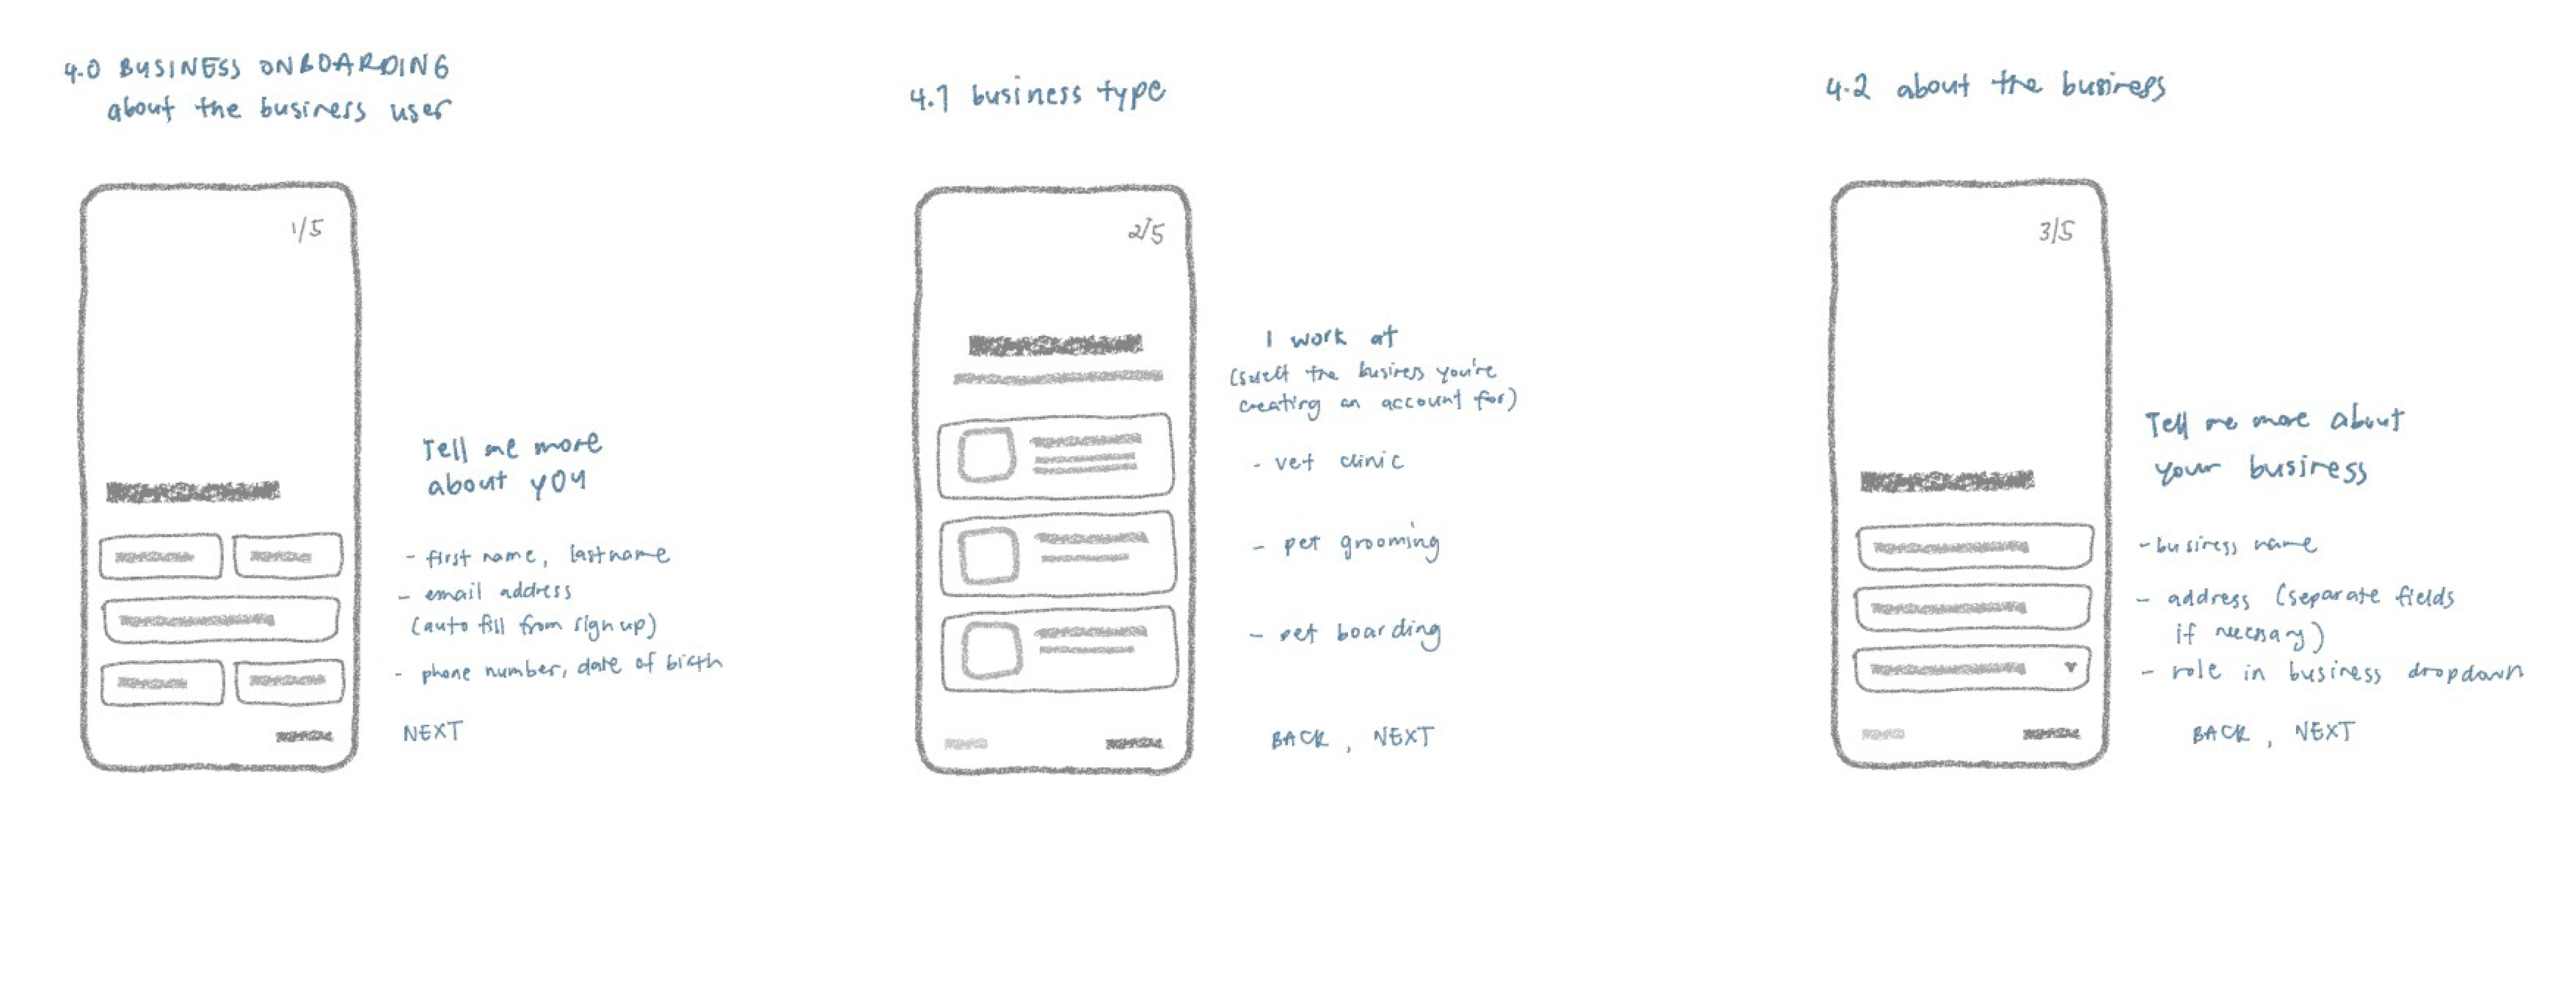 4.0 BUSINESS ONBOARDING
about the business user
1/5
Tell me more
about you
- first name, lastname
- email address
(auto fill from sign up)
- phone number, date of birth
NEXT
4.1 business type
2/5
I work at
(select the business you're
creating an account for)
- vet clinic
- pet grooming
- pet boarding
BACK, NEXT
4.2 about the business
3/5
Tell me more about
your business
- business name
- address (separate fields
if necessary)
- role in business dropdown
BACK, NEXT